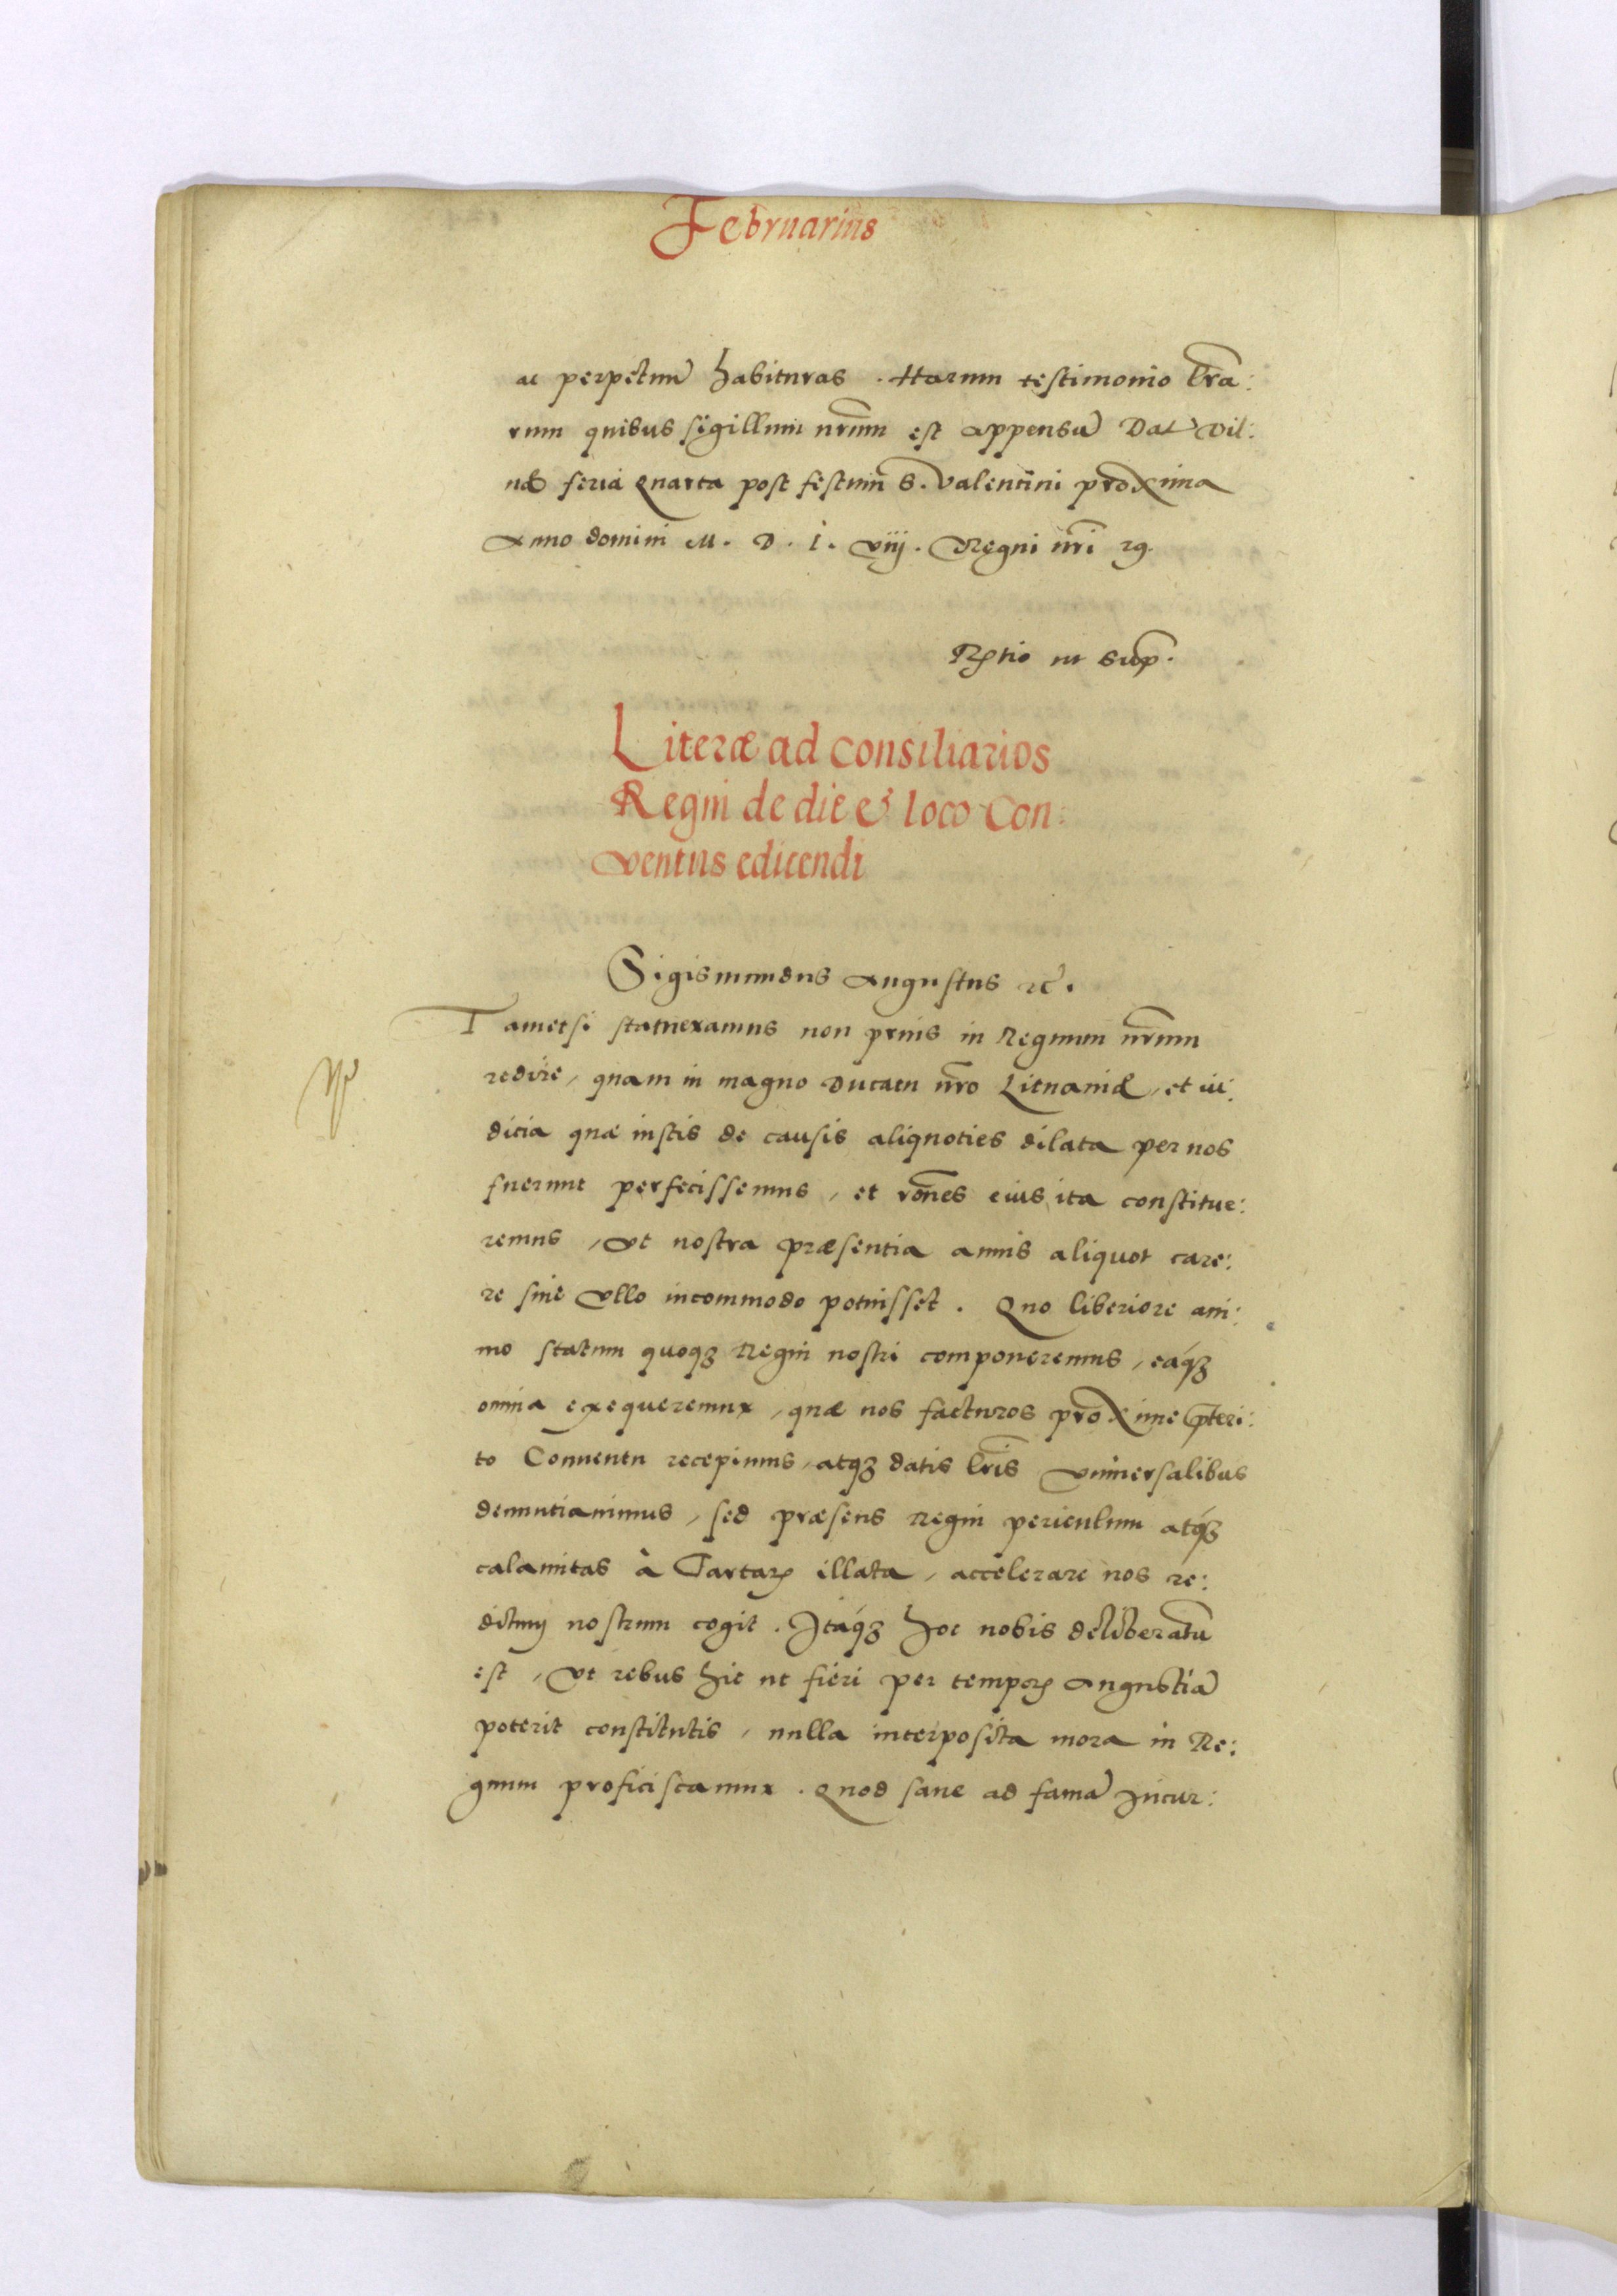 Februarius
ac perpetuũ habituras. Harum testimonio lr̃a:
rum quibus sigillum nr̃um est appensũ Dat Vil:
næ feria Quarta post festum S. Valentini proxima
Anno domini M. D. L. viij. Regni nr̃i 29.
ut sup.
Literæ ad consiliarios
Regni de die & loco Con:
ventus edicendi
Sigismundus Augustus rc̃.
Tametsi statueramus non prius in Regnum nr̃um
redire, quam in magno Ducatu nr̃o Lituaniæ, et iu:
dicia quæ iustis de causis aliquoties dilata per nos
fuerunt perfecissemus, et rões eius ita constitue:
remus, Vt nostra præsentia annis aliquot care:
re sine Vllo incommodo potuisset. Quo liberiore ani:
mo statum quoqʒ Regni nostri componeremus, eáqʒ
omnia exequeremur, quæ nos facturos proxime p̃teri:
to Conuentu recepimus, atqʒ datis lr̃is Vniuersalibus
denuntiauimus, sed præsens Regni periculum atqʒ
calamitas à Tartaꝝ illata, accelerare nos re:
ditum nostrum cogit. Itáqʒ hoc nobis deliberatũ
est, Vt rebus hic ut fieri per tempoꝝ Angustiã
poterit constitutis, nulla interposita mora in Re:
gnum proficiscamur. Quod sane ad famã Incur: